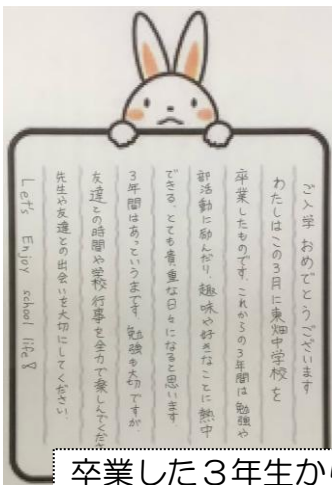 ご入学 おめでとうございます
わたしはこの3月に東畑中学校を
卒業したものです。これからの3年間は勉強や
部活動に励んだり、趣味や好きなことに熱中
できる、とても貴重な日々になると思います。
3年間はあっというまです。勉強も大切ですが
友達との時間や学校行事を全力で楽しんでくださ
先生や友達との出会いを大切にしてください。
Let's Enjoy school life!
卒業した３年生から